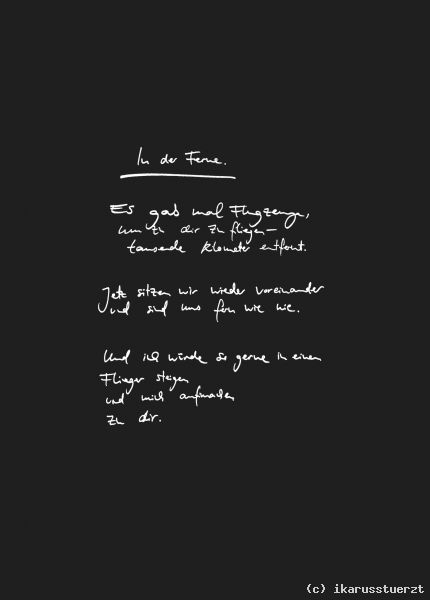 In der Ferne.
Es gab mal Flugzeuge,
um zu dir zu fliegen —
tausende Kilometer entfernt.
Jetzt sitzen wir wieder voreinander
und sind uns fern wie nie.
Und ich würde so gerne in einen
Flieger steigen
und mich aufmachen
zu dir.
(c) ikarusstuerzt